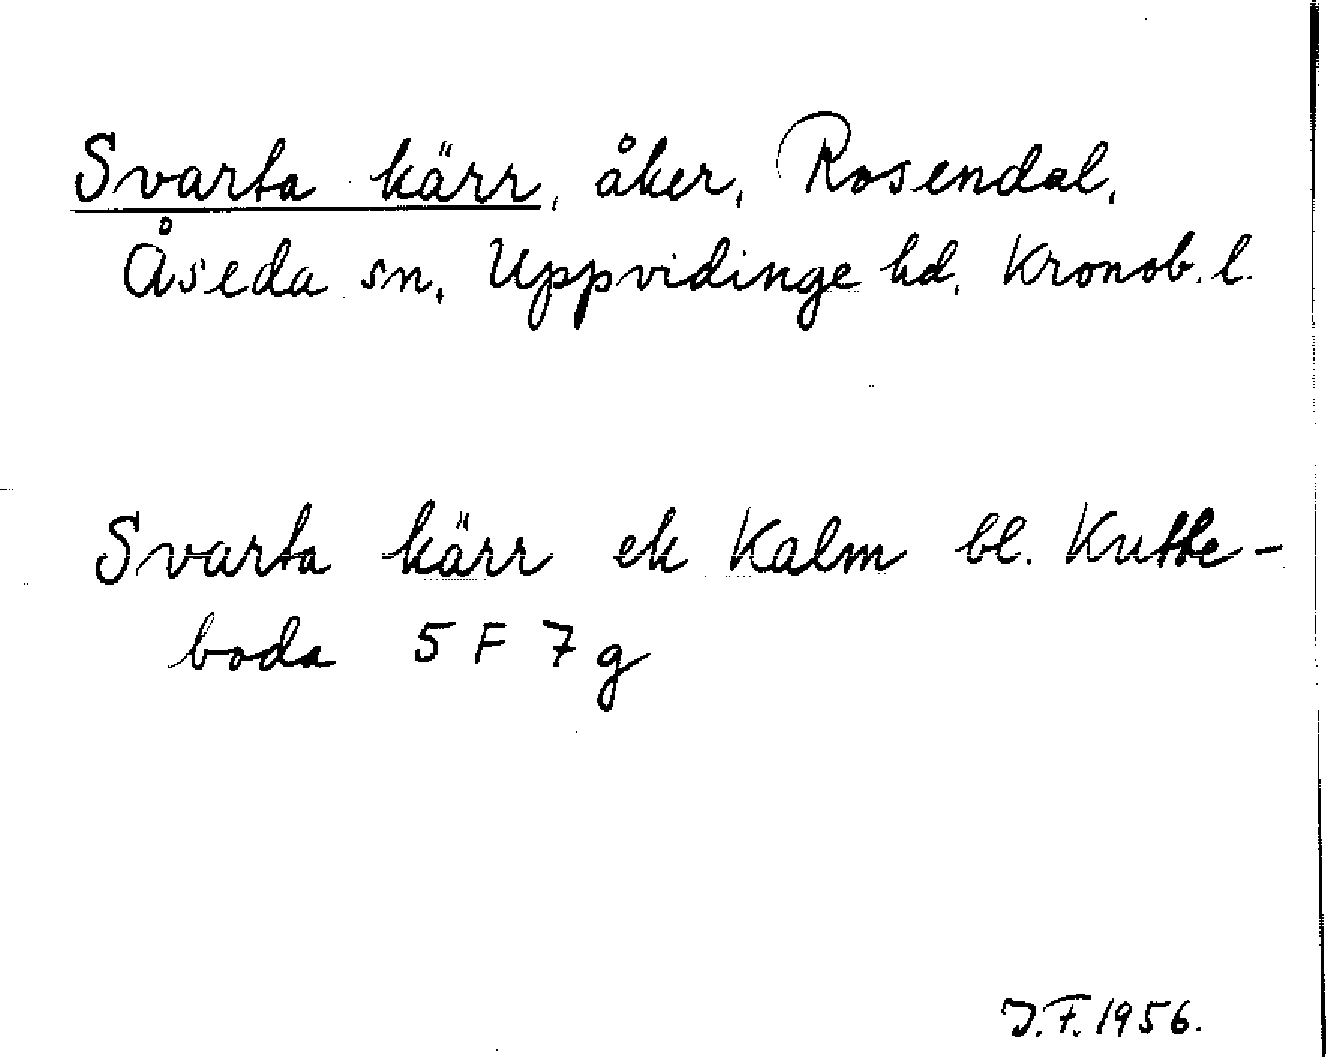 Svarta kärr, åker, Rosendal,
Åseda sn, Uppvidinge hd, Kronob. l.
Svarta kärr ek Kalm bl. Kutte-
boda 5 F 7 g
J.F. 1956.